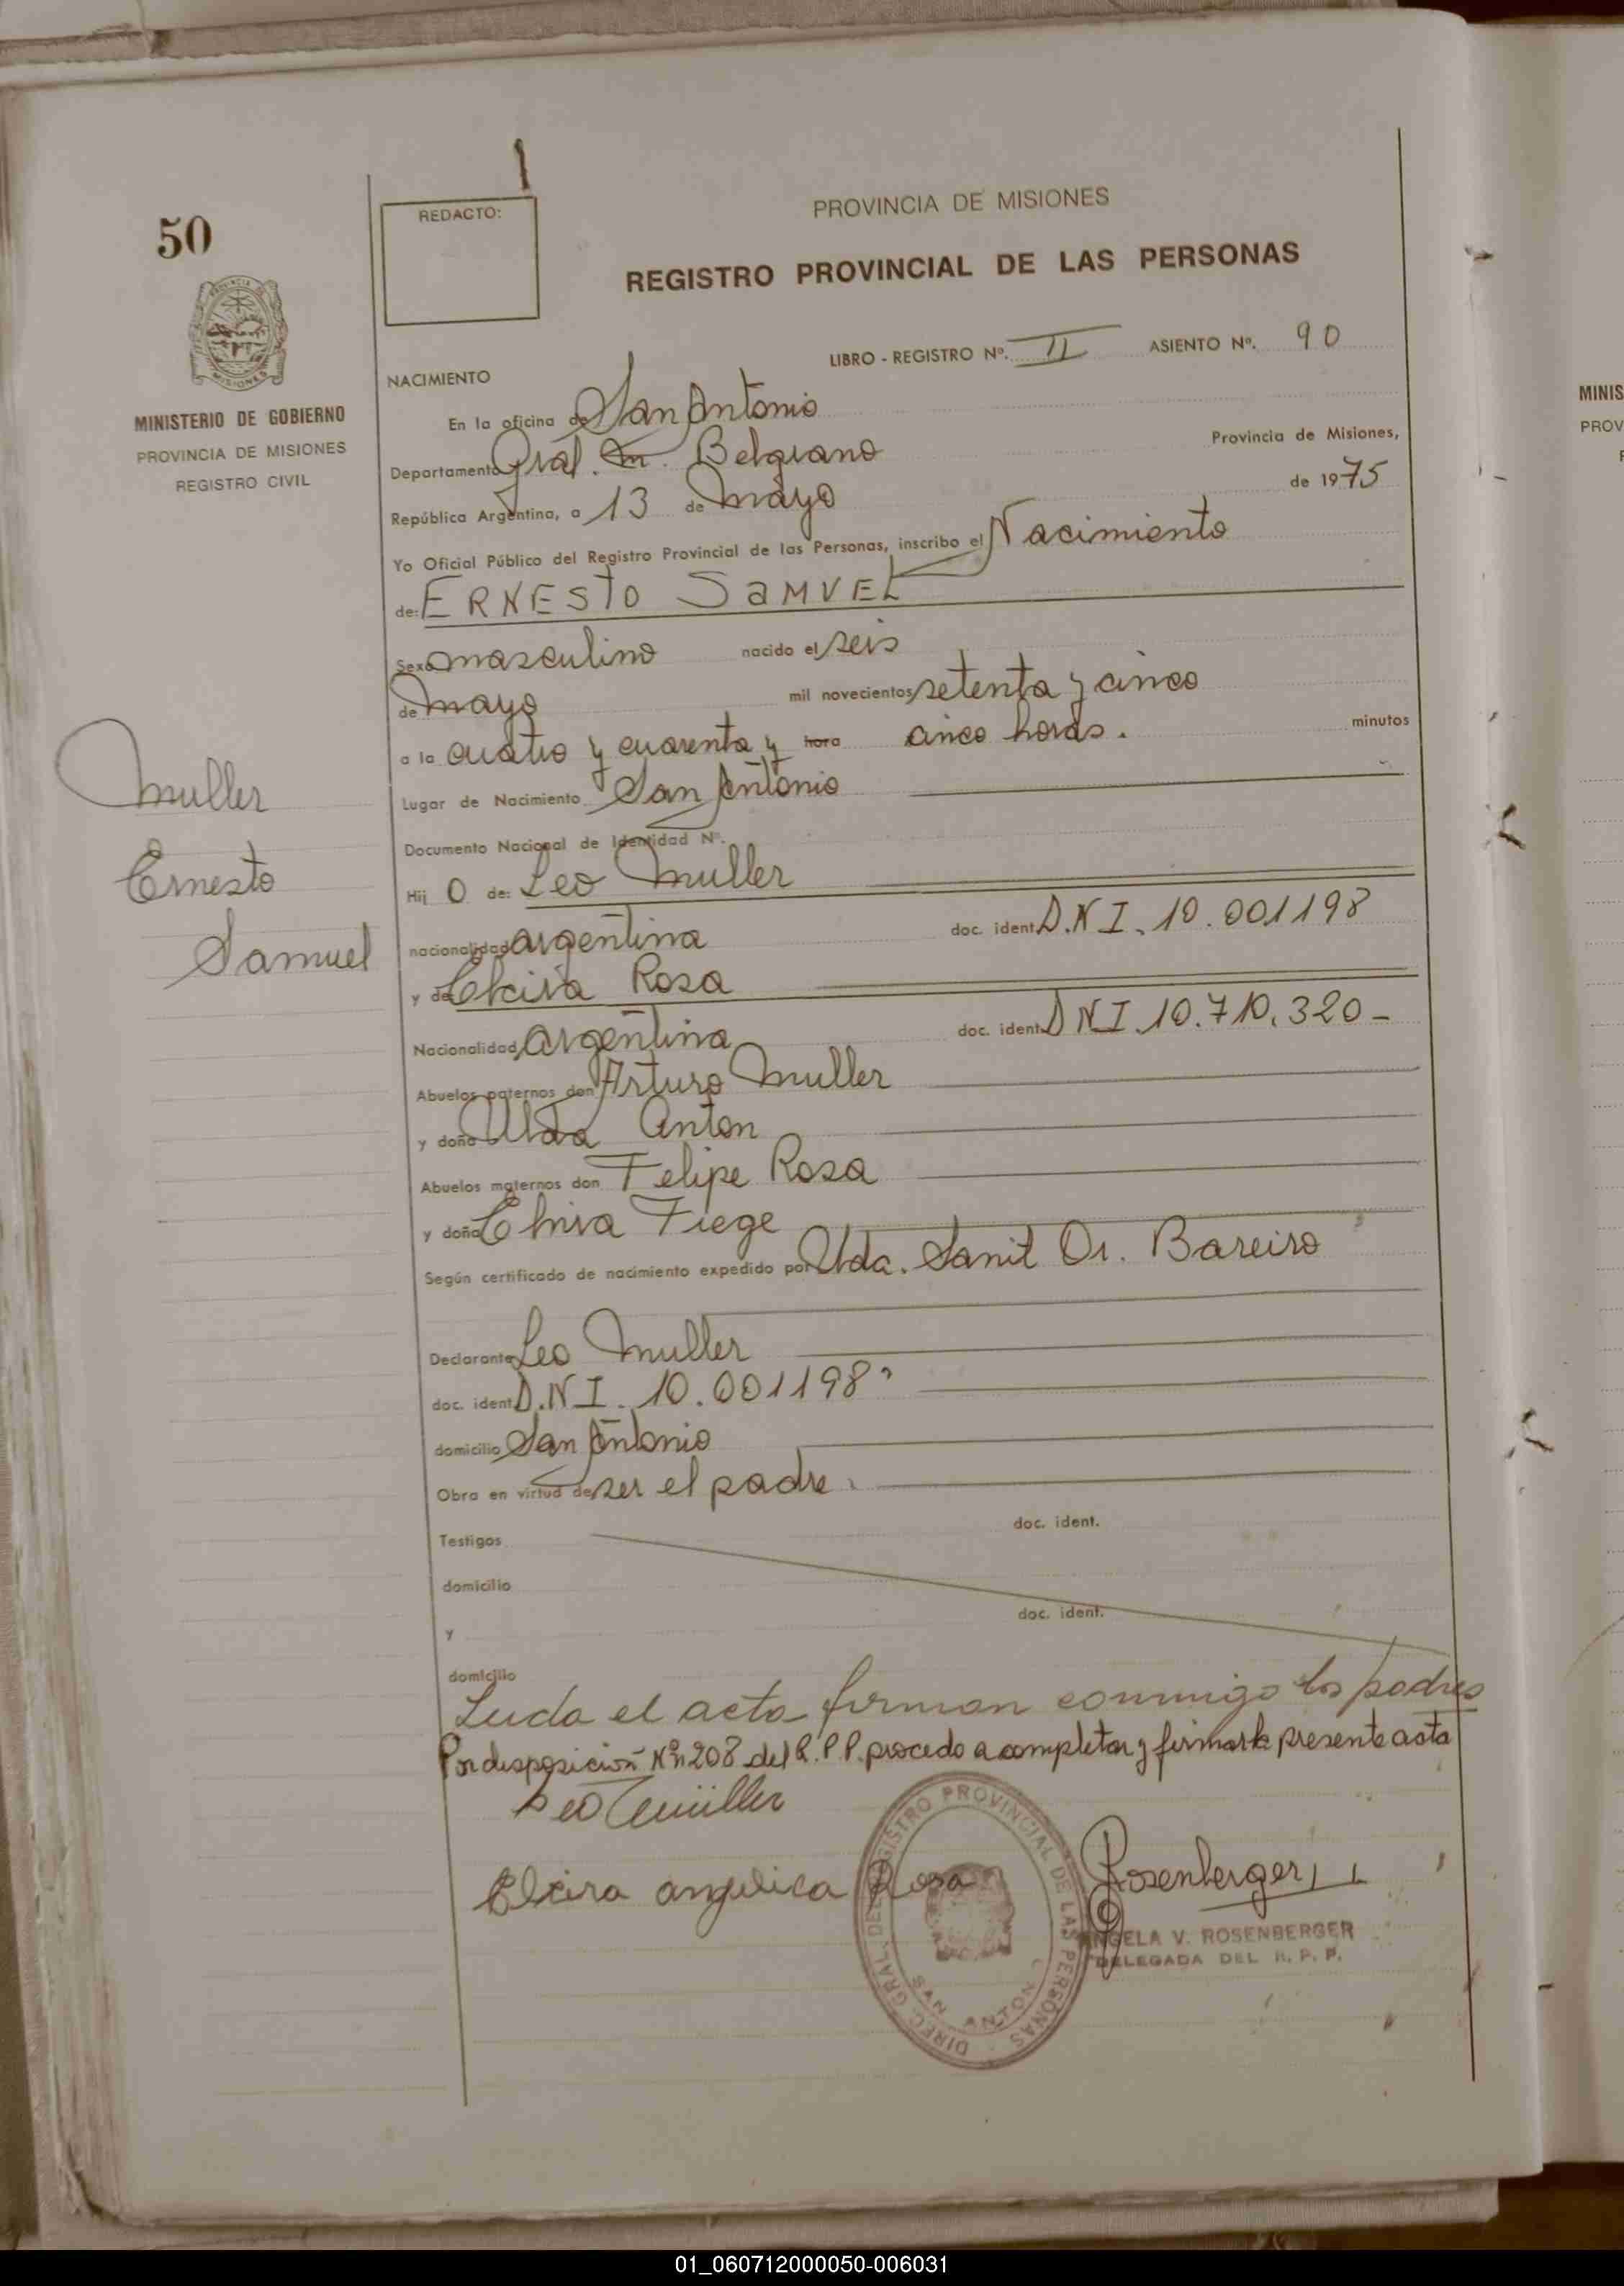 50
REDACTO:
PROVINCIA DE MISIONES
REGISTRO PROVINCIAL DE LAS PERSONAS
MINISTERIO DE GOBIERNO
PROVINCIA DE MISIONES
REGISTRO CIVIL
LIBRO - REGISTRO Nº. II ASIENTO Nº. 90
NACIMIENTO
En la oficina de San Antonio
Departamento Gral. Belgrano Provincia de Misiones,
República Argentina, a 13 de mayo de 1975
Yo Oficial Público del Registro Provincial de las Personas, inscribo el Nacimiento
de: ERNESTO SAMUEL
Sexo masculino nacido el seis
de mayo mil novecientos setenta y cinco
a la cuatro y cuarenta y hora cinco horas. minutos
Lugar de Nacimiento San Antonio
Documento Nacional de Identidad Nº.
Hij o de: Leo Muller
nacionalidad argentina doc. ident D.N.I. 10.001198
y de Elcira Rosa
Nacionalidad argentina doc. ident. DNI.10.710.320-
Abuelos paternos don Arturo Muller
y doña Anton
Abuelos maternos don Felipe Rosa
y doña Fiege
Según certificado de nacimiento expedido por Uda. Sanit Dr. Bareiro
Declarante Leo Muller
doc. ident D.N.I. 10.001198
domicilio San Antonio
Obra en virtud de ser el padre.
Testigos doc. ident.
domicilio
y doc. ident.
domicilio
Leida el acta firman conmigo los padres
Por disposición Nº 1208 del R.P.P. procedo a completar y firmar la presente acta
Leo Müller
Elcira angelica Rosa
Rosenberger
ANGELA V. ROSENBERGER
DELEGADA DEL R. P. P.
DIREC. GRAL. DEL REGISTRO PROVINCIAL DE LAS PERSONAS
SAN ANTONIO
Muller
Ernesto
Samuel
MINIS
PROV
01_060712000050-006031